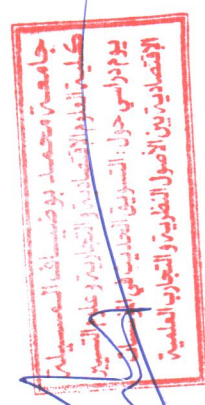 جامعة محمد بوضياف المسيلة
كلية العلوم الإقتصادية والتجارية وعلوم التسيير
يوم دراسي حول: التسويق الحديث في
الإقتصادية بين الأصول النظرية والتجارب العلمية